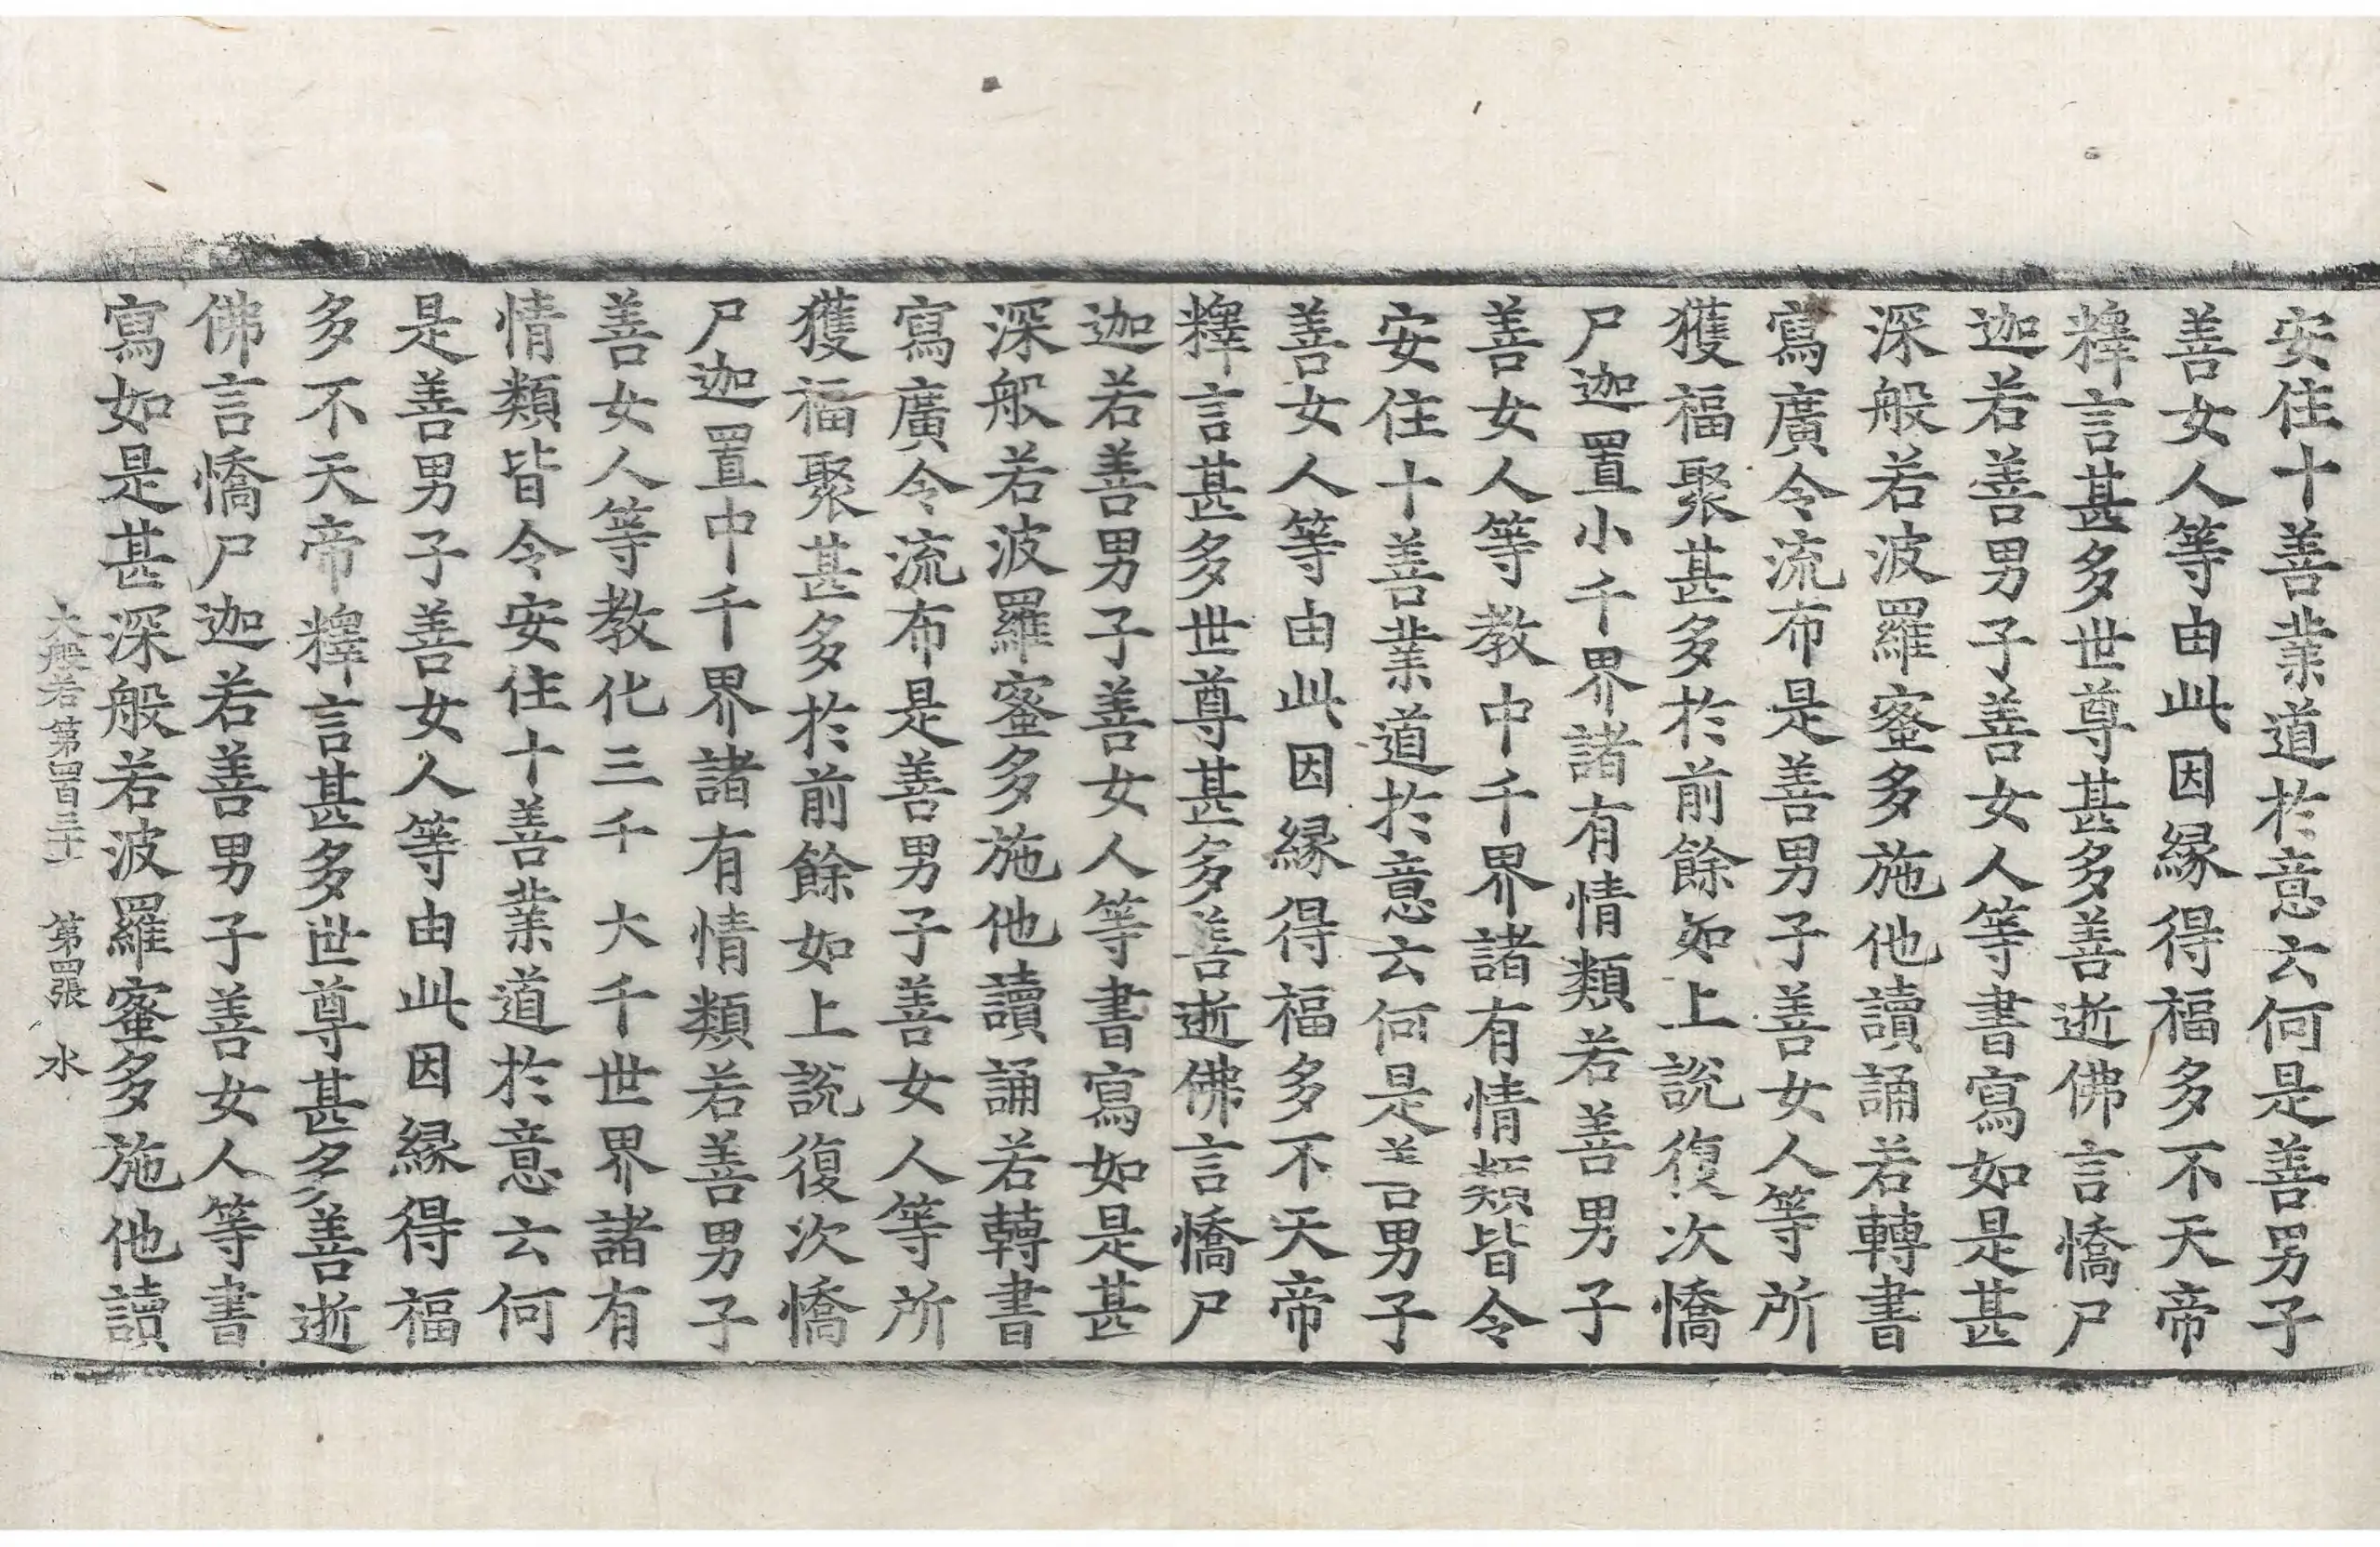 安住十善業道於意云何是善男子
善女人等由此因縁得福多不天帝
釋言甚多世尊甚多善逝佛言憍尸
迦若善男子善女人等書寫如是甚
深般若波羅蜜多施他讀誦若轉書
寫廣令流布是善男子善女人等所
獲福聚甚多於前餘如上說復次憍
尸迦置小千界諸有情類若善男子
善女人等教中千界諸有情類皆令
安住十善業道於意云何是善男子
善女人等由此因縁得福多不天帝
釋言甚多世尊甚多善逝佛言憍尸
迦若善男子善女人等書寫如是甚
深般若波羅蜜多施他讀誦若轉書
寫廣令流布是善男子善女人等所
獲福聚甚多於前餘如上說復次憍
尸迦置中千界諸有情類若善男子
善女人等教化三千大千世界諸有
情類皆令安住十善業道於意云何
是善男子善女人等由此因縁得福
多不天帝釋言甚多世尊甚多善逝
佛言憍尸迦若善男子善女人等書
寫如是甚深般若波羅蜜多施他讀
大般若第四百三十 第四張 水